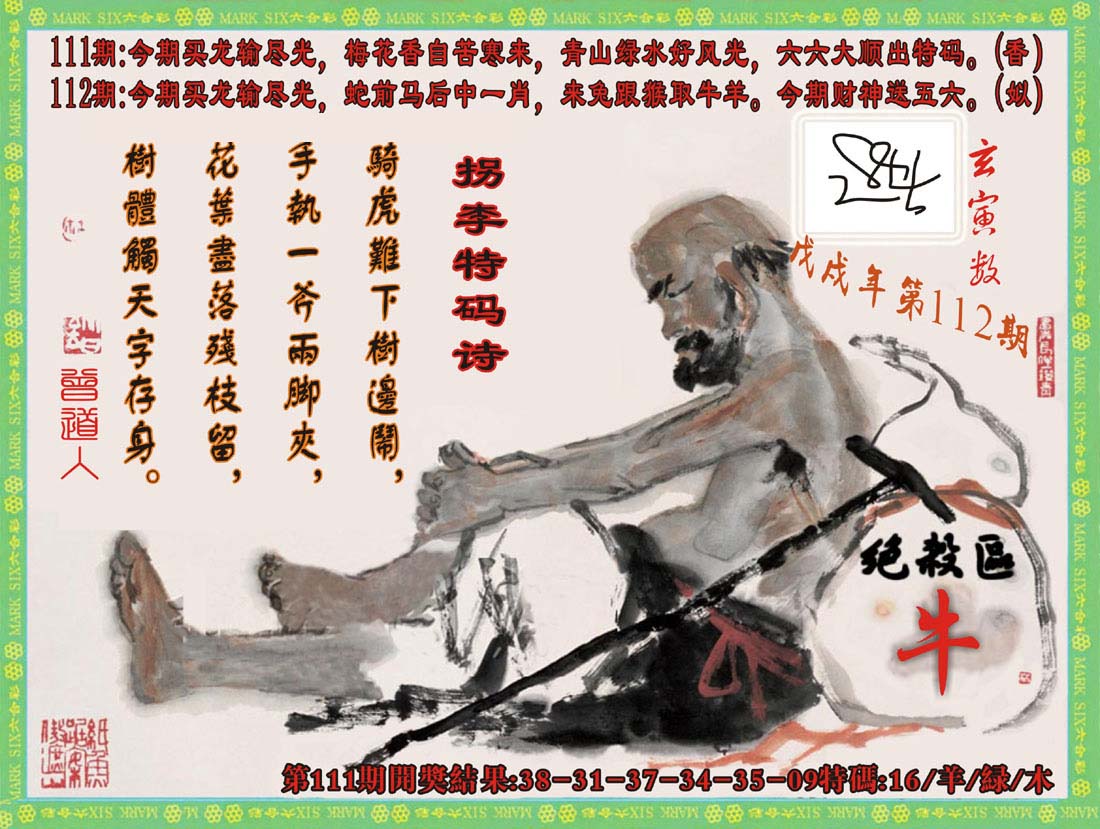 MARK SIX六合彩
111期:今期买龙输尽光,梅花香自苦寒来,青山绿水好风光,六六大顺出特码。(香)
112期:今期买龙输尽光,蛇前马后中一肖,来兔跟猴取牛羊。今期财神送五六。(姒)
玄寅数
戊戌年第112期
拐李特码诗
騎虎難下樹邊鬧,
手執一斧兩脚夾,
花葉盡落殘枝留,
樹體觸天字存身。
曾道人
绝殺區
牛
第111期開獎結果:38-31-37-34-35-09特碼:16/羊/緑/木